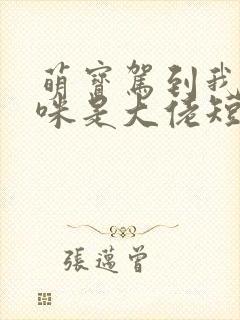 萌寶駕到我
咪是大佬短
張邁曾